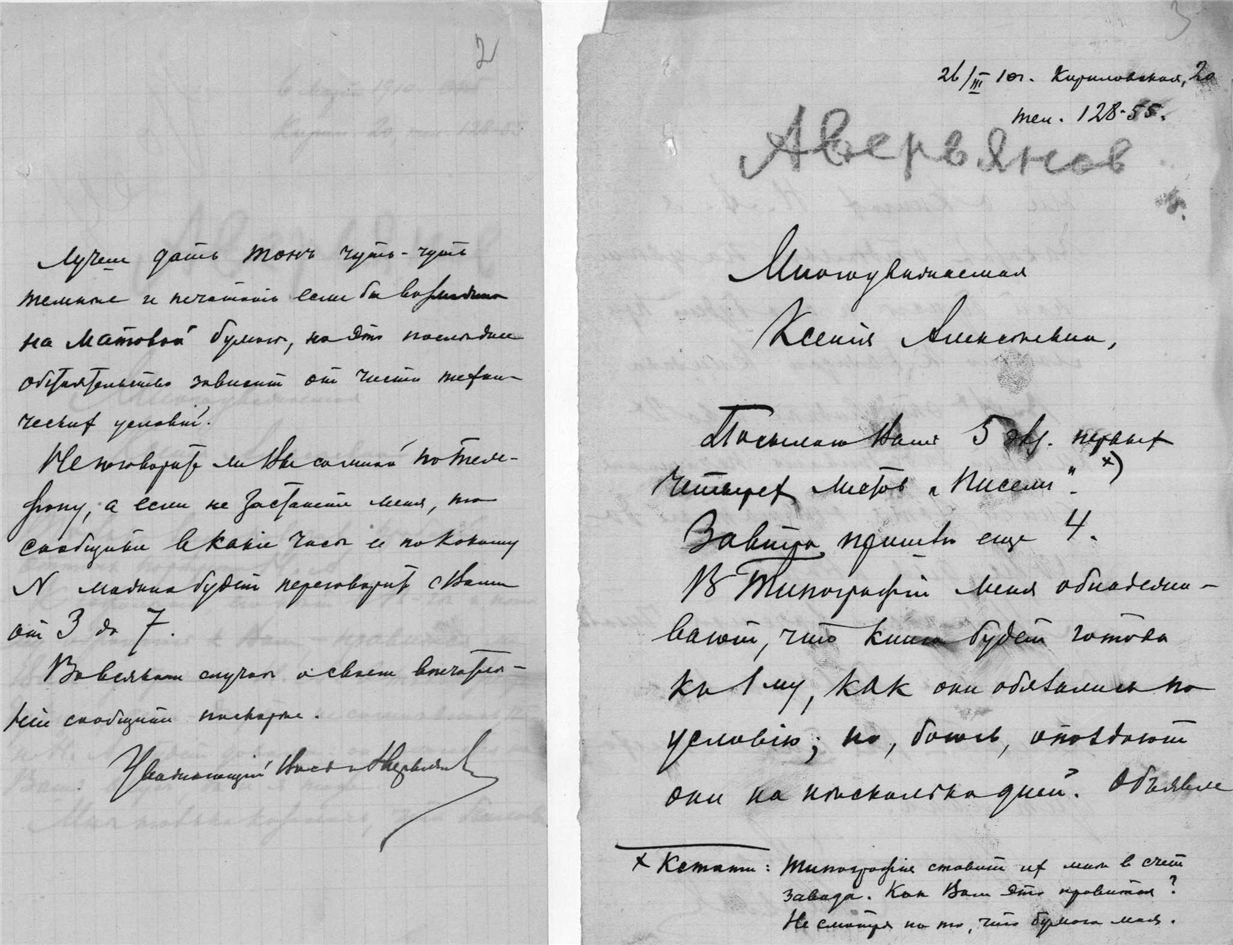 2
Лучше дать тонъ чуть-чуть
темнѣе и печатать если бы возможно
на матовой бумагѣ, но это послѣднее
обстоятельство зависитъ от чисто техни-
ческих условій.
Не поговорите ли Вы со мной по теле-
фону, а если не застанете меня, то
сообщите в какіе часы и по какому
N можно будетъ переговорить с Вами
от 3 до 7.
Во всяком случаѣ о своем впечатлѣ-
ніи сообщите поскорѣе.
Уважающій Васъ Н Аверьянов
3
26/III 10 г. Кириловская, 20
тел. 128-55.
Аверьянов
Многоуважаемая
Ксенія Алексѣевна,
Посылаю Вамъ 5 экз. первых
четырех листов „Писем". x)
Завтра пришлю еще 4.
В Типографіи меня обнадежи-
вают, что книга будет готова
къ 1 му, как они обязались по
условію; но, боюсь, опоздают
они на нѣсколько дней. Объявле
x Кстати: Типографія ставит их мнѣ в счет
завода. Как Вам это нравится?
Не смотря на то, что бумага моя.